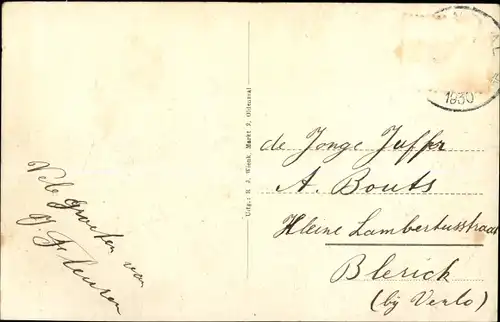 Vele Groeten van
1930
Uitg.: R. J. Wienk, Markt 9, Oldenzaal
de Jonge Juffr
A. Bouts
Kleine Lambertusstraat
Blerick
(bij Venlo)